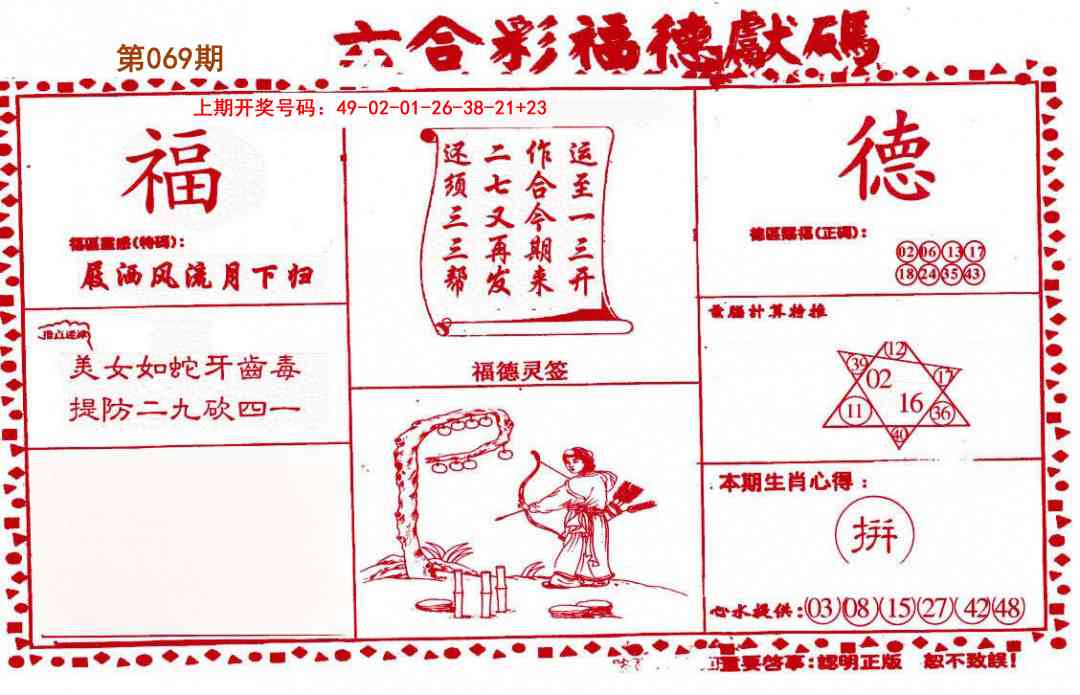 六合彩福德獻碼
第069期
上期开奖号码：49-02-01-26-38-21+23
福
福區靈感(特碼)：
屐洒风流月下归
美女如蛇牙齒毒
提防二九砍四一
运至一三开
作合今期来
二七又再发
还须三三帮
福德灵签
德
德區賜福(正碼)：
02 06 13 17
18 24 35 43
電腦計算特推
12
39 02 17
11 16 36
40
本期生肖心得：
拼
心水提供：(03)(08)(15)(27)(42)(48)
重要啓事：認明正版 恕不致誤！